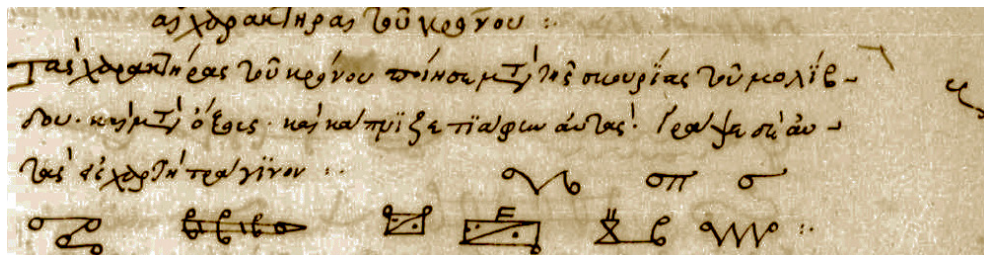 ας χαρακτήρας τοῦ κρόνου :·
Τὰς χαρακτήρας τοῦ κρόνου ποίησ μετὰ τῆς σκουρΐας τοῦ μολΐβ-
δου· καὶ μετὰ ὄξος· καὶ καπνϊξε τϊαφιν αὐτάς· Γράψε αὐ-
τὰς εἰς χαρτὴ τραγΐνον :·